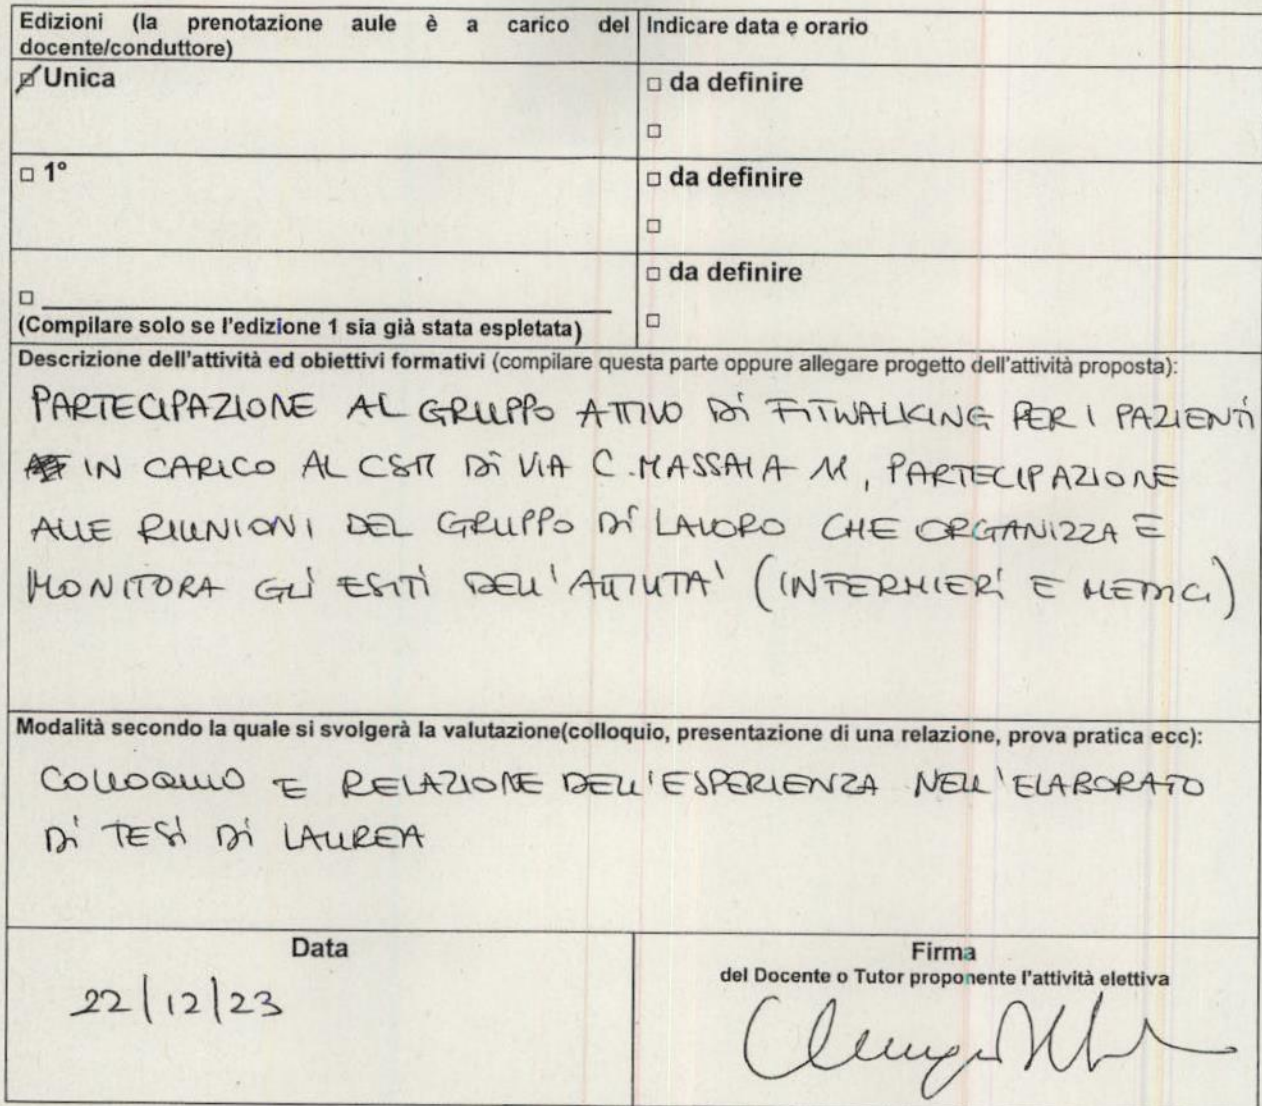 Edizioni (la prenotazione aule è a carico del docente/conduttore)
Indicare data e orario
Unica
□ da definire
□
□ 1°
□ da definire
□
□ da definire
□ ____________________
(Compilare solo se l'edizione 1 sia già stata espletata)
□
Descrizione dell'attività ed obiettivi formativi (compilare questa parte oppure allegare progetto dell'attività proposta):
PARTECIPAZIONE AL GRUPPO ATTIVO DI FITWALKING PER I PAZIENTI
IN CARICO AL CSM DI VIA C. MASSAIA 11, PARTECIPAZIONE
ALLE RIUNIONI DEL GRUPPO DI LAVORO CHE ORGANIZZA E
MONITORA GLI ESITI DELL'ATTIVITA' (INFERMIERI E MEDICI)
Modalità secondo la quale si svolgerà la valutazione(colloquio, presentazione di una relazione, prova pratica ecc):
COLLOQUIO E RELAZIONE DELL'ESPERIENZA NELL'ELABORATO
DI TESI DI LAUREA
Data
22/12/23
Firma
del Docente o Tutor proponente l'attività elettiva